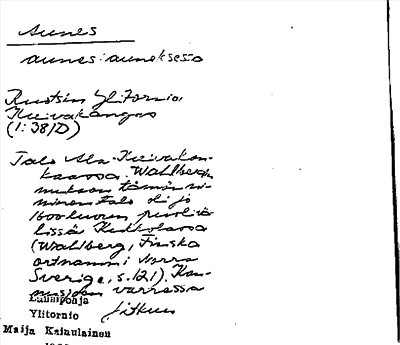 Aunes
aunes : auneksesta
Ruotsin Ylitornio,
Kuivakangas
(1:38/D)
Talo Ala-Kuivakan-
kaassa. Wahlbergin
mukaan tämän ni-
minen talo oli jo
1600-luvun puolivä-
lissä Kukkolassa
(Wahlberg, Finska
ortnamn i norra
Sverige, s. 121). Kan-
varressa
Ylitornio
Jatkuu
Maija Kainulainen